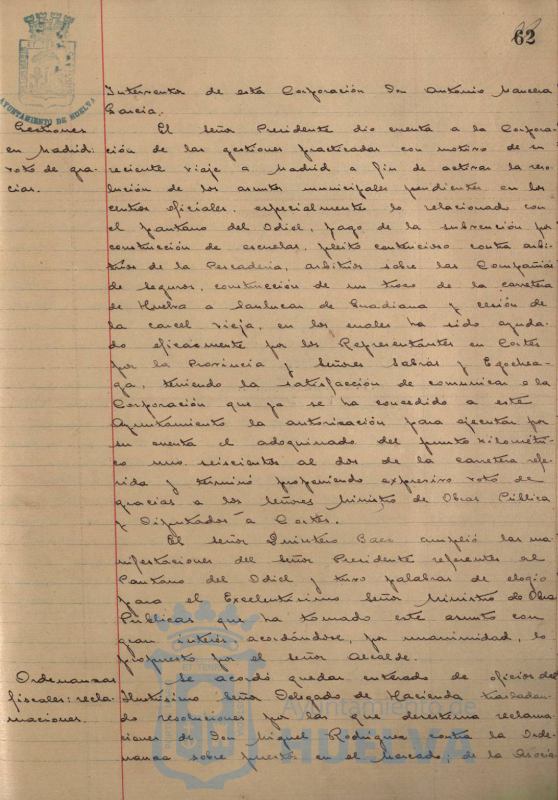 62
AYUNTAMIENTO DE HUELVA
Interventor de esta Corporación Don Antonio Mancera
García.
Gestiones
en Madrid:
voto de gra-
cias.
El señor Presidente dio cuenta a la Corpora-
ción de las gestiones practicadas con motivo de su
reciente viaje a Madrid a fin de activar la reso-
lución de los asuntos municipales pendientes en los
centros oficiales, especialmente lo relacionado con
el pantano del Odiel, pago de la subvención por
construcción de escuelas, pleito contencioso contra arbi-
trios de la Pescadería, arbitrios sobre las Compañías
de seguros, construcción de un trozo de la carretera
de Huelva a Sanlucar de Guadiana y cesión de
la carcel vieja, en los cuales ha sido ayuda-
do eficazmente por los Representantes en Cortes
por la Provincia y Señores Sabrás y Egochea-
ga, teniendo la satisfacción de comunicar a la
Corporación que ya se ha concedido a este
Ayuntamiento la autorización para ejecutar por
su cuenta el adoquinado del punto kilométri-
co uno seiscientos al dos de la carretera refe-
rida y terminó proponiendo expresivo voto de
gracias a los señores Ministro de Obras Pública
y Diputados a Cortes.
El señor Quintero Baez amplió las ma-
nifestaciones del señor Presidente referentes al
Pantano del Odiel y tuvo palabras de elogio
para el Excelentísimo Señor Ministro de Obras
Públicas que ha tomado este asunto con
gran interés, acordándose, por unanimidad, lo
propuesto por el señor Alcalde.
Ordenanzas
fiscales: recla-
maciones.
Se acordó quedar enterado de oficios del
Ilustrísimo Señor Delegado de Hacienda trasladan-
do resoluciones por las que desestima reclama-
ciones de Don Miguel Rodriguez contra la Orde-
nanza sobre puestos en el Mercado; de la Asocia
Ayuntamiento de
HUELVA